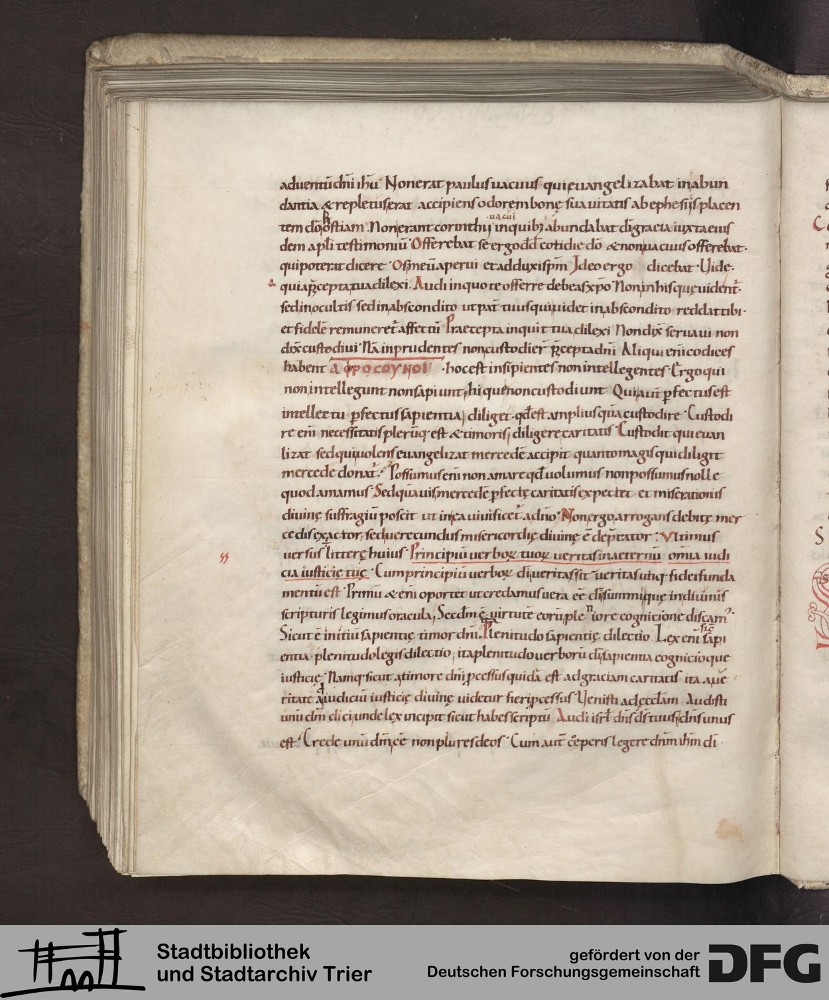 aduentū dn̄i ihū Non erat paulus uacuus qui euangelizabat in abun
dantia & repletus erat accipiens odorem bonę suauitatis ab ephesiis placen
tem dō hostiam. Non erant corinthii uacui in quib; abundabat di gratia iuxta eius
dem apli testimoniū Offerebat se ergo dd cotidie dō & non uacuus offerebat.
qui poterat dicere Os meū aperui et adduxi spm̄ Ideo ergo dicebat Uide
quia p̄cepta tua dilexi. Audi in quo te offerre debeas xpo Non in his quę uident̄.
sed in occultis sed in abscondito ut pat̄ tuus qui uidet in abscondito reddat tibi.
et fidelē remuneret̄ affectū Praecepta inquit tua dilexi Non dix̄ seruaui non
dix̄ custodiui Nā inprudentes non custodier̄ p̄cepta dn̄i Aliqui eni codices
habent ΑΦΡΟCΟΥΝΟΙ hoc est insipientes non intellegentes Ergo qui
non intellegunt non sapiunt, hi quę non custodiunt Qui aut̄ pfectus est
intellectu pfectus sapientia diligit qd est amplius quā custodire Custodi
re eni necessitatis plerūq; est & timoris diligere caritatis Custodit qui euan
lizat sed qui uolens euangelizat mercedē accipit quanto magis qui diligit
mercede donat̄. Possumus eni non amare qd uolumus non possumus nolle
quod amamus Sed quāuis mercedē pfectę caritatis expectet et miserationis
diuinę suffragiū poscit ut in ea uiuificet̄ a dn̄o Non ergo arrogans debitę mer
cedis exactor, sed uerecundus misericordię diuinę ē deprecator Vltimus
uersus litterę huius Principiū uerboꝝ tuoꝝ ueritas in aeternū omia iudi
cia iusticię tuę Cum principiū uerboꝝ di ueritas sit ueritas utiq; fidei funda
mentū est Primū & eni oportet ut credamus uera eē quę diuinis
scripturis legimus oracula, Secdm̄ ē uirtutē eorū pleniore cognitione discam̄.
Sicut ē initiū sapientię timor dn̄i Plenitudo sapientię dilectio Lex eni sapi
entia plenitudo legis dilectio, ita plenitudo uerborū di sapientia cognitioque
iusticię Namq; sicut a timore dn̄i pcessus quidā est ad gratiam caritatis ita a ue
ritate ad iudiciū iusticię diuinę uidetur fieri pcessus Uenisti ad eccl̄am Audisti
unū dm̄ dici unde lex incipit sicut habes scriptū Audi isrl̄ dn̄s ds̄ tuus dn̄s unus
est Crede unū dm̄ eē non plures deos Cum aut̄ cęperis legere dn̄m ihm di
Stadtbibliothek
und Stadtarchiv Trier
gefördert von der
Deutschen Forschungsgemeinschaft
DFG